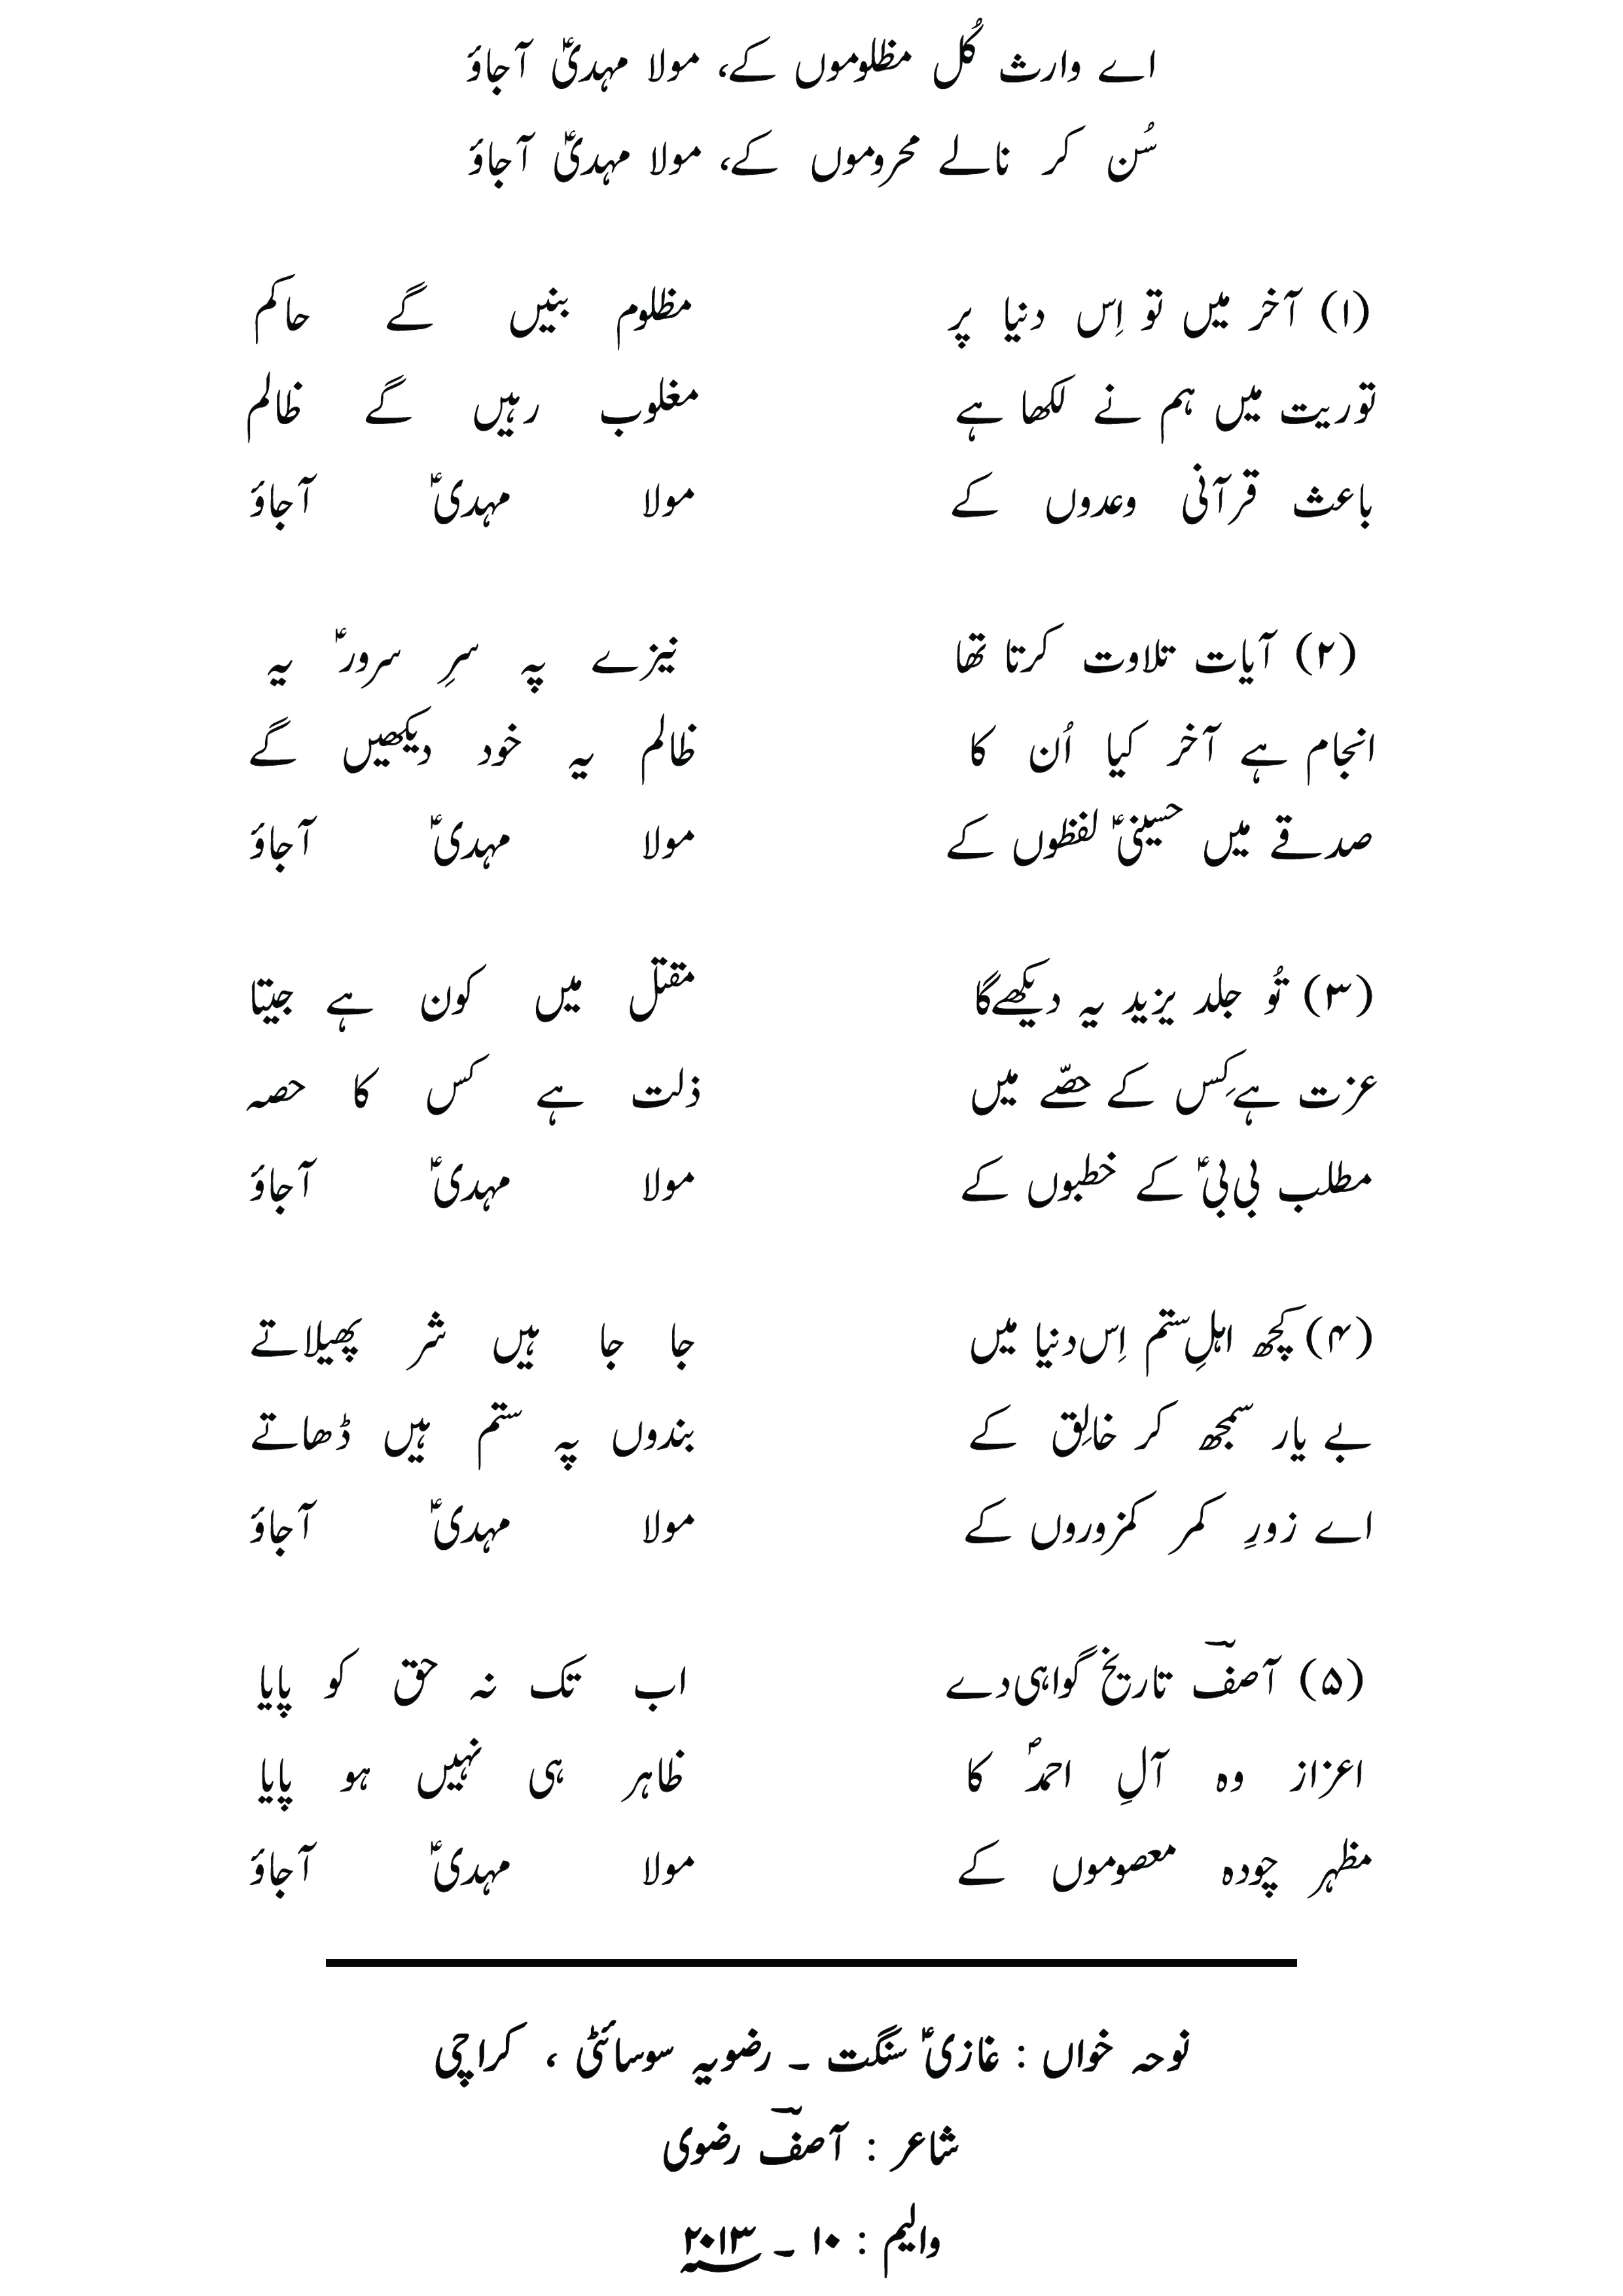 اے وارث کُل مظلوموں کے، مولا مہدیؑ آجاؤ
سُن کر نالے محروموں کے، مولا مہدیؑ آجاؤ
(۱) آخر میں تو اِس دنیا پر مظلوم بنیں گے حاکم
توریت میں ہم نے لکھا ہے مغلوب رہیں گے ظالم
باعث قرآنی وعدوں کے مولا مہدیؑ آجاؤ
(۲) آیات تلاوت کرتا تھا نیزے پہ سرِ سرورؑ یہ
انجام ہے آخر کیا اُن کا ظالم یہ خود دیکھیں گے
صدقے میں حسینیؑ لفظوں کے مولا مہدیؑ آجاؤ
(۳) تُو جلد یزید یہ دیکھے گا مقتل میں کون ہے جیتا
عزت ہے کِس کے حصّے میں ذلت ہے کس کا حصہ
مطلب بی بیؑ کے خطبوں کے مولا مہدیؑ آجاؤ
(۴) کچھ اہلِ ستم اِس دنیا میں جا جا ہیں شر پھیلاتے
بے یار سمجھ کر خالِق کے بندوں پہ ستم ہیں ڈھاتے
اے زورِ کمر کمزوروں کے مولا مہدیؑ آجاؤ
(۵) آصفؔ تاریخ گواہی دے اب تک نہ حق کو پایا
اعزاز وہ آلِ احمدؐ کا ظاہر ہی نہیں ہو پایا
مظہر چودہ معصوموں کے مولا مہدیؑ آجاؤ
نوحہ خواں : غازیؑ سنگت ۔ رضویہ سوسائٹی ، کراچی
شاعر : آصفؔ رضوی
والیم : ۱۰ ۔ ۲۰۱۳؁